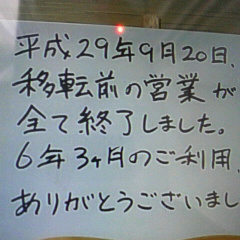 平成29年9月20日、
移転前の営業が
全て終了しました。
6年3ヶ月のご利用、
ありがとうございまし